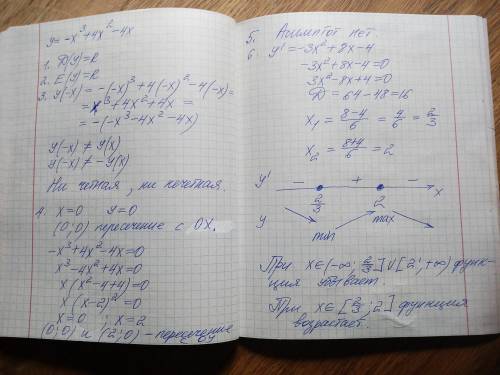 y = -x³+4x²-4x
1. D(y)=R
2. E(y)=R
3. y(-x) = -(-x)³+4(-x)²-4(-x)=
= x³+4x²+4x =
= -(-x³-4x²-4x)
y(-x) ≠ y(x)
y(-x) ≠ -y(x)
Ни четная, ни нечетная.
4. x=0 y=0
(0;0) пересечение с OX.
-x³+4x²-4x=0
x³-4x²+4x=0
x(x²-4+4)=0
x(x-2)²=0
x=0 ; x=2
(0;0) и (2;0) - пересечение
5. Асимптот нет.
6. y' = -3x²+8x-4
-3x²+8x-4=0
3x²-8x+4=0
D = 64-48=16
x₁ = 8-4/6 = 4/6 = 2/3
x₂ = 8+4/6 = 2
y' - + -
2/3 2 x
y min max
При x∈(-∞; 2/3]∪[2;+∞) функ-
ция убывает.
При x∈[2/3; 2] функция
возрастает.